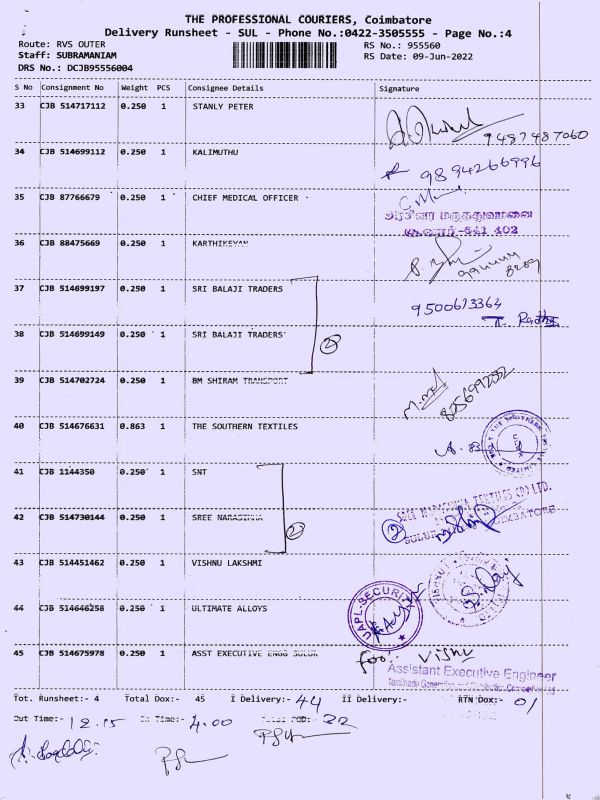 THE PROFESSIONAL COURIERS, Coimbatore
Delivery Runsheet - SUL - Phone No.:0422-3505555 - Page No.:4
Route: RVS OUTER
RS No.: 955560
Staff: SUBRAMANIAM
RS Date: 09-Jun-2022
DRS No.: DCJB95556004
S No Consignment No Weight PCS Consignee Details Signature
33 CJB 514717112 0.250 1 STANLY PETER
9487487060
34 CJB 514699112 0.250 1 KALIMUTHU
9894266996
35 CJB 87766679 0.250 1 CHIEF MEDICAL OFFICER
அரசினர் மருத்துவமனை
சூலூர்-641 402
36 CJB 88475669 0.250 1 KARTHIKEYAN
37 CJB 514699197 0.250 1 SRI BALAJI TRADERS
9500613364
38 CJB 514699149 0.250 1 SRI BALAJI TRADERS
2
39 CJB 514702724 0.250 1 BM SHIRAM TRANSPORT
40 CJB 514676631 0.863 1 THE SOUTHERN TEXTILES
41 CJB 1144350 0.250 1 SNT
42 CJB 514730144 0.250 1 SREE NARASIMHA
2
2
43 CJB 514451462 0.250 1 VISHNU LAKSHMI
44 CJB 514646258 0.250 1 ULTIMATE ALLOYS
UAPL-SECURITY
45 CJB 514675978 0.250 1 ASST EXECUTIVE ENGG SULUR
for: Vishnu
Assistant Executive Engineer
Tot. Runsheet:- 4 Total Dox:- 45 I Delivery:- 44 II Delivery:- RTN Dox:- 01
Out Time:- 12.15 In Time:- 4.00 Total POD:- 32